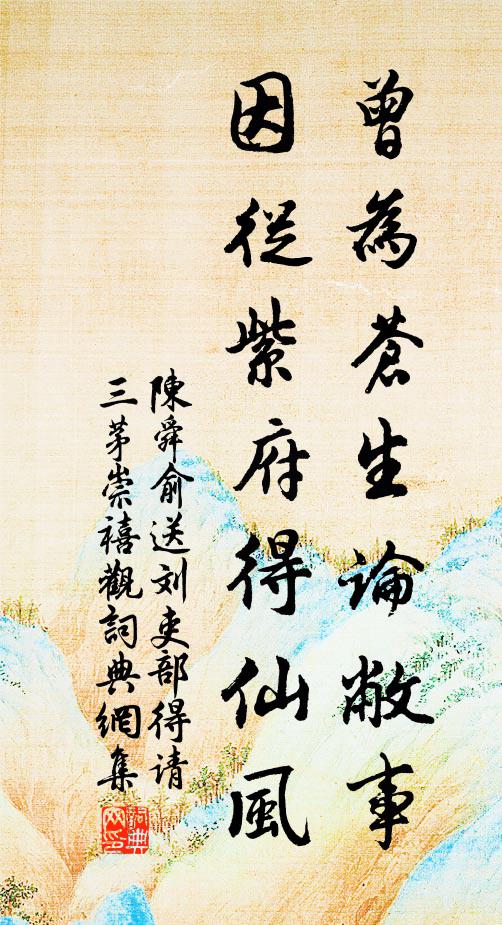 曾為蒼生論敝事
因從紫府得仙風
陳舜俞送刘吏部得请
三茅崇禧觀詞典網集